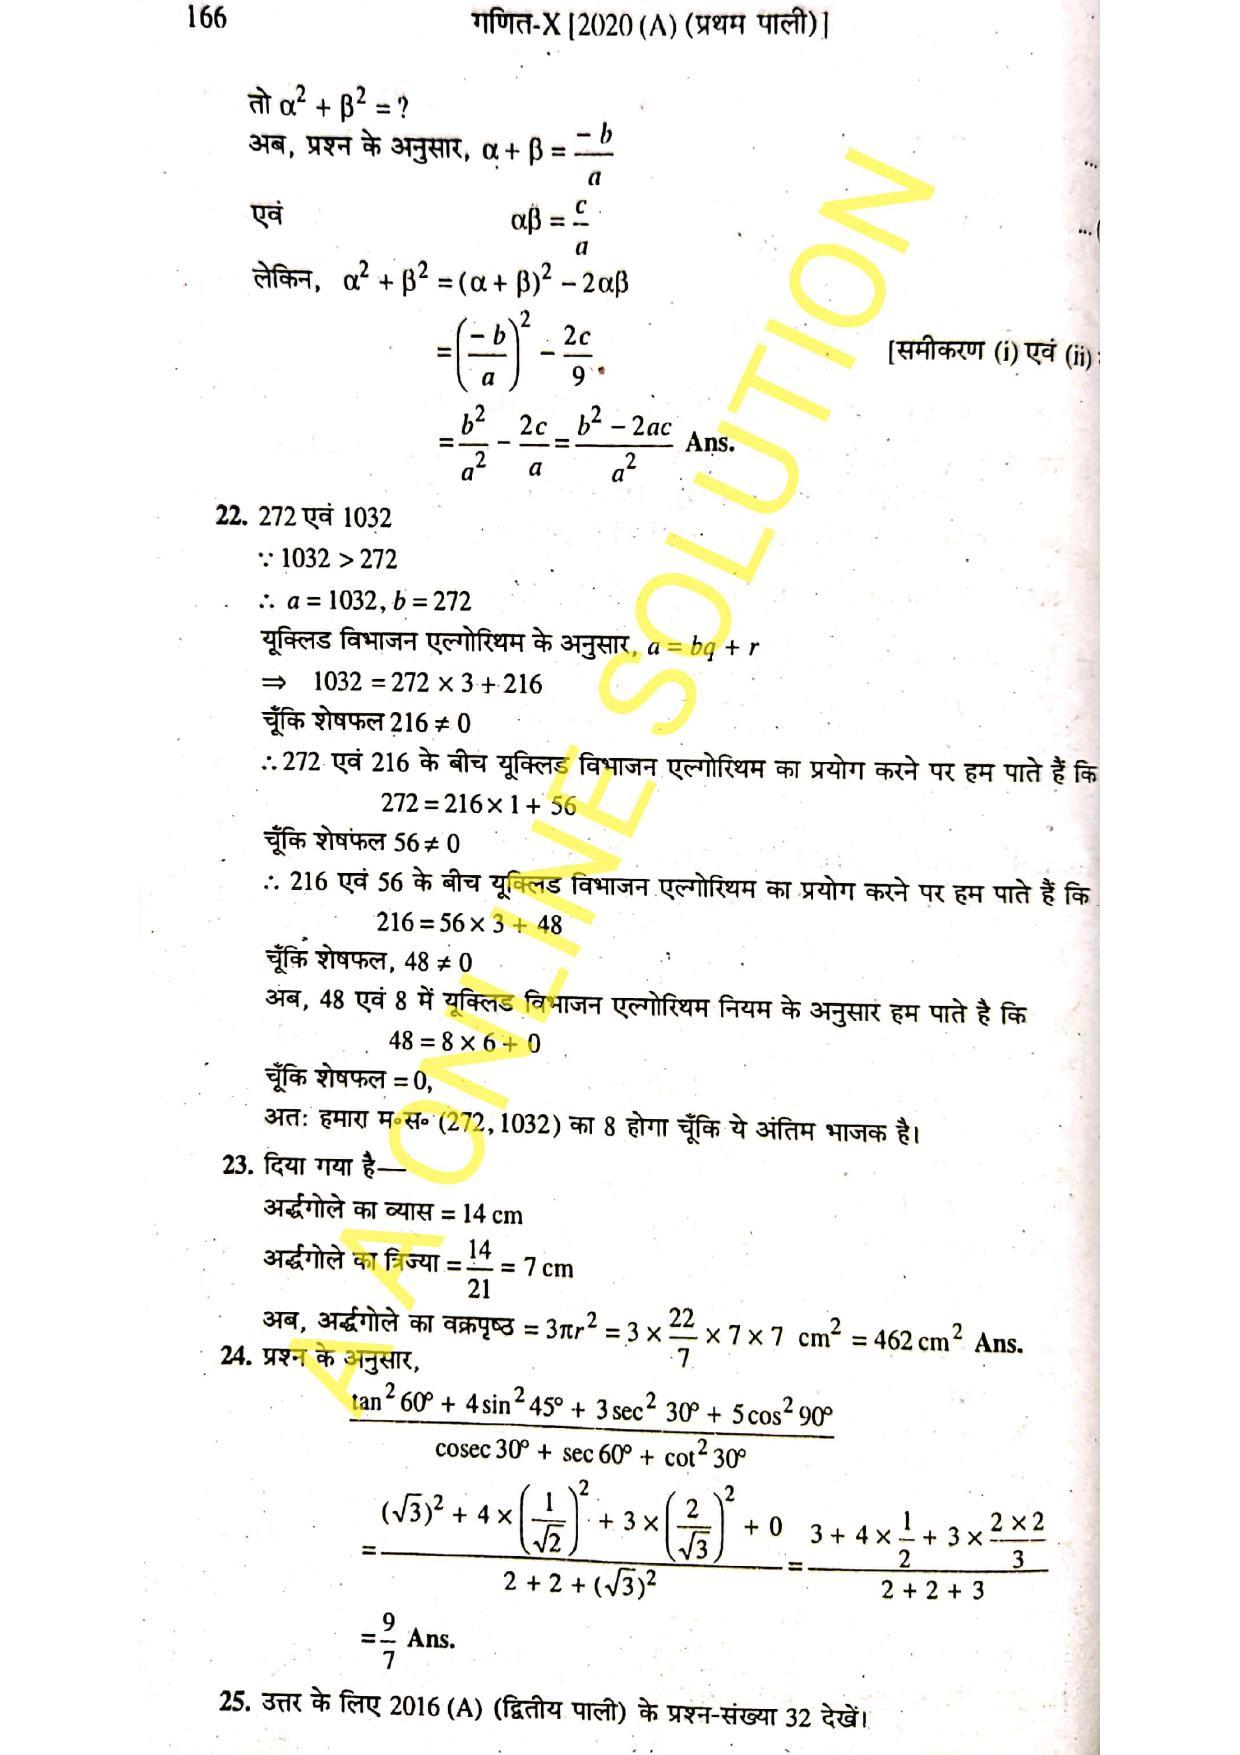 166
गणित-X [2020 (A) (प्रथम पाली)]
तो α² + β² = ?
अब, प्रश्न के अनुसार, α + β = −b/a ...
एवं αβ = c/a ...(
लेकिन, α² + β² = (α + β)² − 2αβ
= (−b/a)² − 2c/9 [समीकरण (i) एवं (ii)
= b²/a² − 2c/a = b² − 2ac/a² Ans.
22. 272 एवं 1032
∵ 1032 > 272
∴ a = 1032, b = 272
यूक्लिड विभाजन एल्गोरिथम के अनुसार, a = bq + r
⇒ 1032 = 272 × 3 + 216
चूँकि शेषफल 216 ≠ 0
∴ 272 एवं 216 के बीच यूक्लिड विभाजन एल्गोरिथम का प्रयोग करने पर हम पाते हैं कि
272 = 216 × 1 + 56
चूँकि शेषफल 56 ≠ 0
∴ 216 एवं 56 के बीच यूक्लिड विभाजन एल्गोरिथम का प्रयोग करने पर हम पाते हैं कि
216 = 56 × 3 + 48
चूँकि शेषफल, 48 ≠ 0
अब, 48 एवं 8 में यूक्लिड विभाजन एल्गोरिथम नियम के अनुसार हम पाते है कि
48 = 8 × 6 + 0
चूँकि शेषफल = 0,
अतः हमारा म॰स॰ (272, 1032) का 8 होगा चूँकि ये अंतिम भाजक है।
23. दिया गया है—
अर्द्धगोले का व्यास = 14 cm
अर्द्धगोले का त्रिज्या = 14/21 = 7 cm
अब, अर्द्धगोले का वक्रपृष्ठ = 3πr² = 3 × 22/7 × 7 × 7 cm² = 462 cm² Ans.
24. प्रश्न के अनुसार,
tan² 60° + 4 sin² 45° + 3 sec² 30° + 5 cos² 90°
cosec 30° + sec 60° + cot² 30°
= (√3)² + 4 × (1/√2)² + 3 × (2/√3)² + 0 / 2 + 2 + (√3)² = 3 + 4 × 1/2 + 3 × 2 × 2/3 / 2 + 2 + 3
= 9/7 Ans.
25. उत्तर के लिए 2016 (A) (द्वितीय पाली) के प्रश्न-संख्या 32 देखें।
A A ONLINE SOLUTION